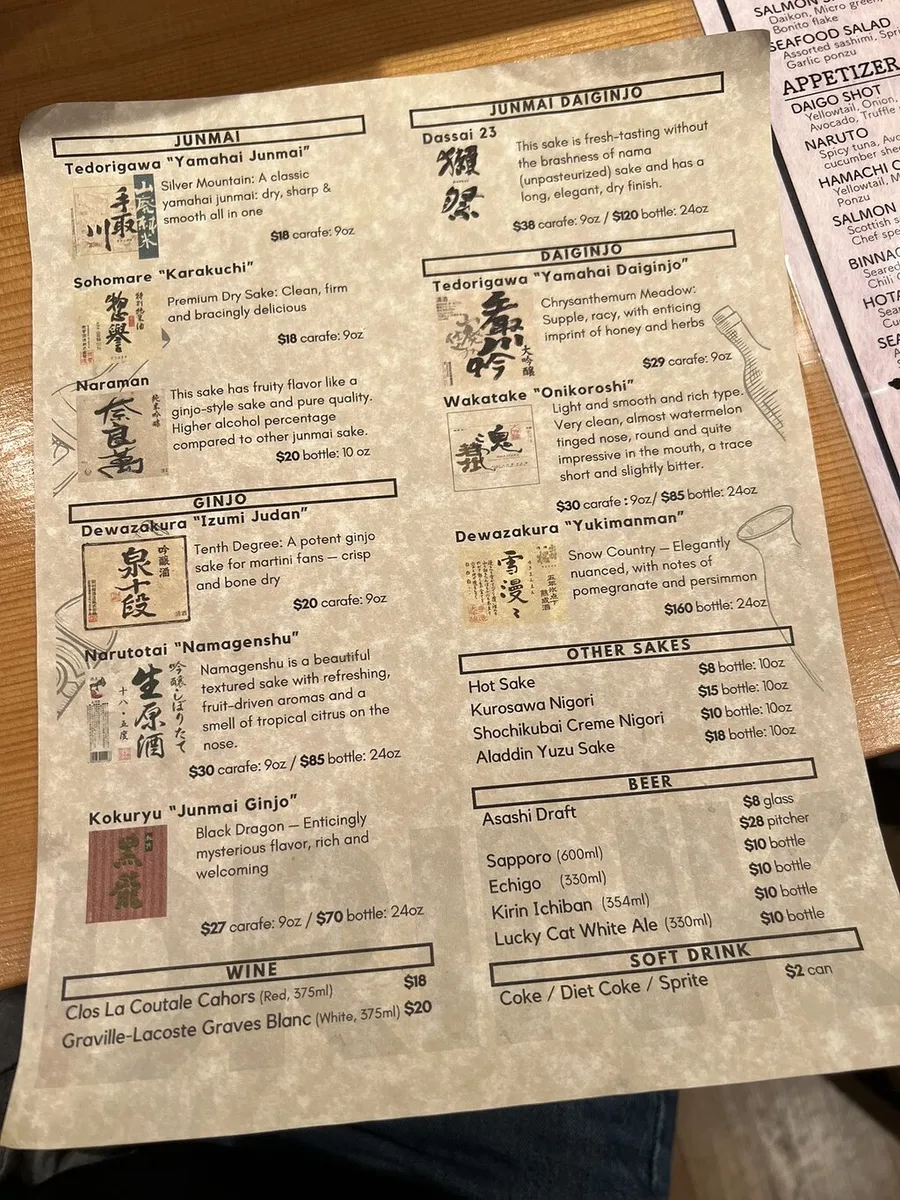 JUNMAI
Tedorigawa "Yamahai Junmai"
手取川
山廃純米
Silver Mountain: A classic
yamahai junmai: dry, sharp &
smooth all in one
$18 carafe: 9oz
Sohomare "Karakuchi"
惣誉
特別純米酒
Premium Dry Sake: Clean, firm
and bracingly delicious
$18 carafe: 9oz
Naraman
奈良萬
純米吟醸
This sake has fruity flavor like a
ginjo-style sake and pure quality.
Higher alcohol percentage
compared to other junmai sake.
$20 bottle: 10 oz
GINJO
Dewazakura "Izumi Judan"
泉十段
吟醸酒
Tenth Degree: A potent ginjo
sake for martini fans – crisp
and bone dry
$20 carafe: 9oz
Narutotai "Namagenshu"
吟醸・しぼりたて
生原酒
十八・五度
Namagenshu is a beautiful
textured sake with refreshing,
fruit-driven aromas and a
smell of tropical citrus on the
nose.
$30 carafe: 9oz / $85 bottle: 24oz
Kokuryu "Junmai Ginjo"
黒龍
Black Dragon – Enticingly
mysterious flavor, rich and
welcoming
$27 carafe: 9oz / $70 bottle: 24oz
WINE
Clos La Coutale Cahors (Red, 375ml) $18
Graville-Lacoste Graves Blanc (White, 375ml) $20
JUNMAI DAIGINJO
Dassai 23
獺祭
This sake is fresh-tasting without
the brashness of nama
(unpasteurized) sake and has a
long, elegant, dry finish.
$38 carafe: 9oz / $120 bottle: 24oz
DAIGINJO
Tedorigawa "Yamahai Daiginjo"
大吟醸
Chrysanthemum Meadow:
Supple, racy, with enticing
imprint of honey and herbs
$29 carafe: 9oz
Wakatake "Onikoroshi"
鬼
若竹
Light and smooth and rich type.
Very clean, almost watermelon
tinged nose, round and quite
impressive in the mouth, a trace
short and slightly bitter.
$30 carafe : 9oz/ $85 bottle: 24oz
Dewazakura "Yukimanman"
雪漫々
Snow Country – Elegantly
nuanced, with notes of
pomegranate and persimmon
$160 bottle: 24oz
OTHER SAKES
Hot Sake $8 bottle: 10oz
Kurosawa Nigori $15 bottle: 10oz
Shochikubai Creme Nigori $10 bottle: 10oz
Aladdin Yuzu Sake $18 bottle: 10oz
BEER
Asashi Draft $8 glass
$28 pitcher
Sapporo (600ml) $10 bottle
Echigo (330ml) $10 bottle
Kirin Ichiban (354ml) $10 bottle
Lucky Cat White Ale (330ml) $10 bottle
SOFT DRINK
Coke / Diet Coke / Sprite $2 can
SALMON
Daikon, Micro green,
Bonito flake
SEAFOOD SALAD
Assorted sashimi,
Garlic ponzu
APPETIZER
DAIGO SHOT
Yellowtail, Onion,
Avocado, Truffle
NARUTO
Spicy tuna,
cucumber
HAMACHI
Yellowtail,
Ponzu
SALMON
Scottish
Chef
Seared
Chili
Seared